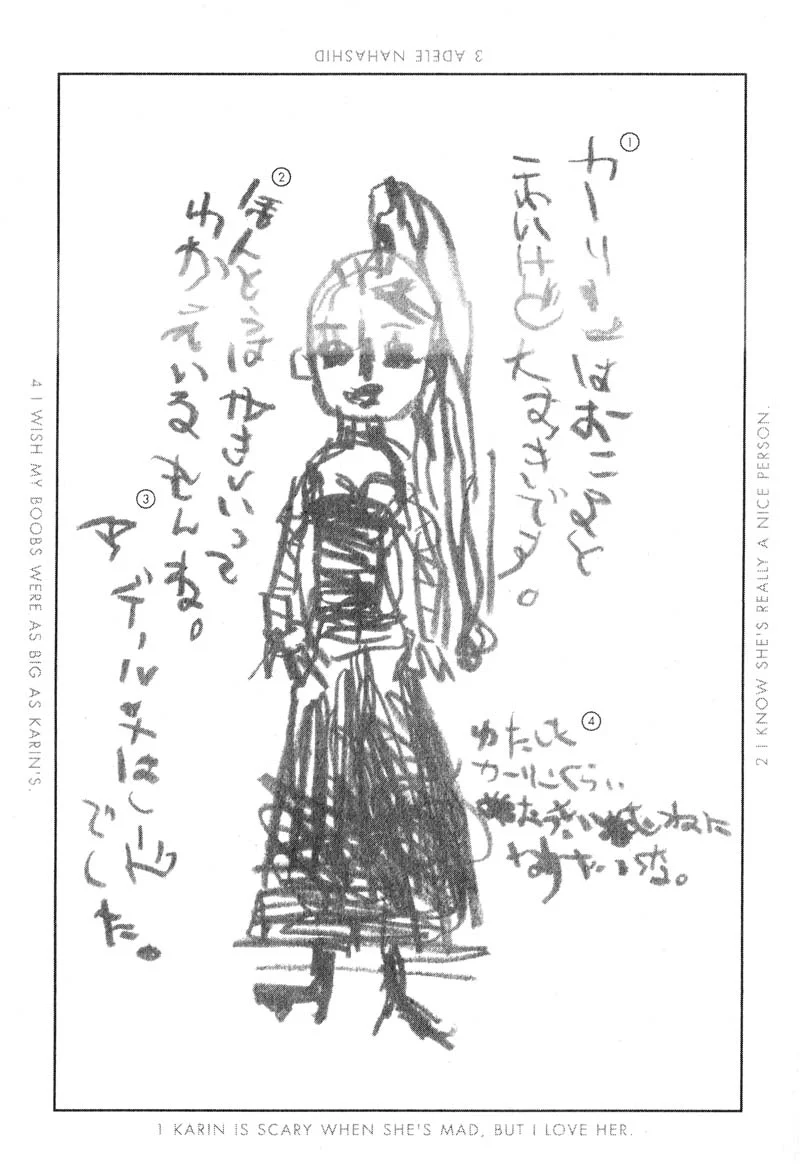 3 ADELE NAHASHID
①
カーリンはおこると
こわいけど大すきです。
②
ほんとうはやさしいって
わかっているもんね。
③
アデールナはしーど
でした。
④
わたしも
カーリンくらい
むねに
なりたいな。
4 I WISH MY BOOBS WERE AS BIG AS KARIN'S.
2 I KNOW SHE'S REALLY A NICE PERSON.
1 KARIN IS SCARY WHEN SHE'S MAD, BUT I LOVE HER.